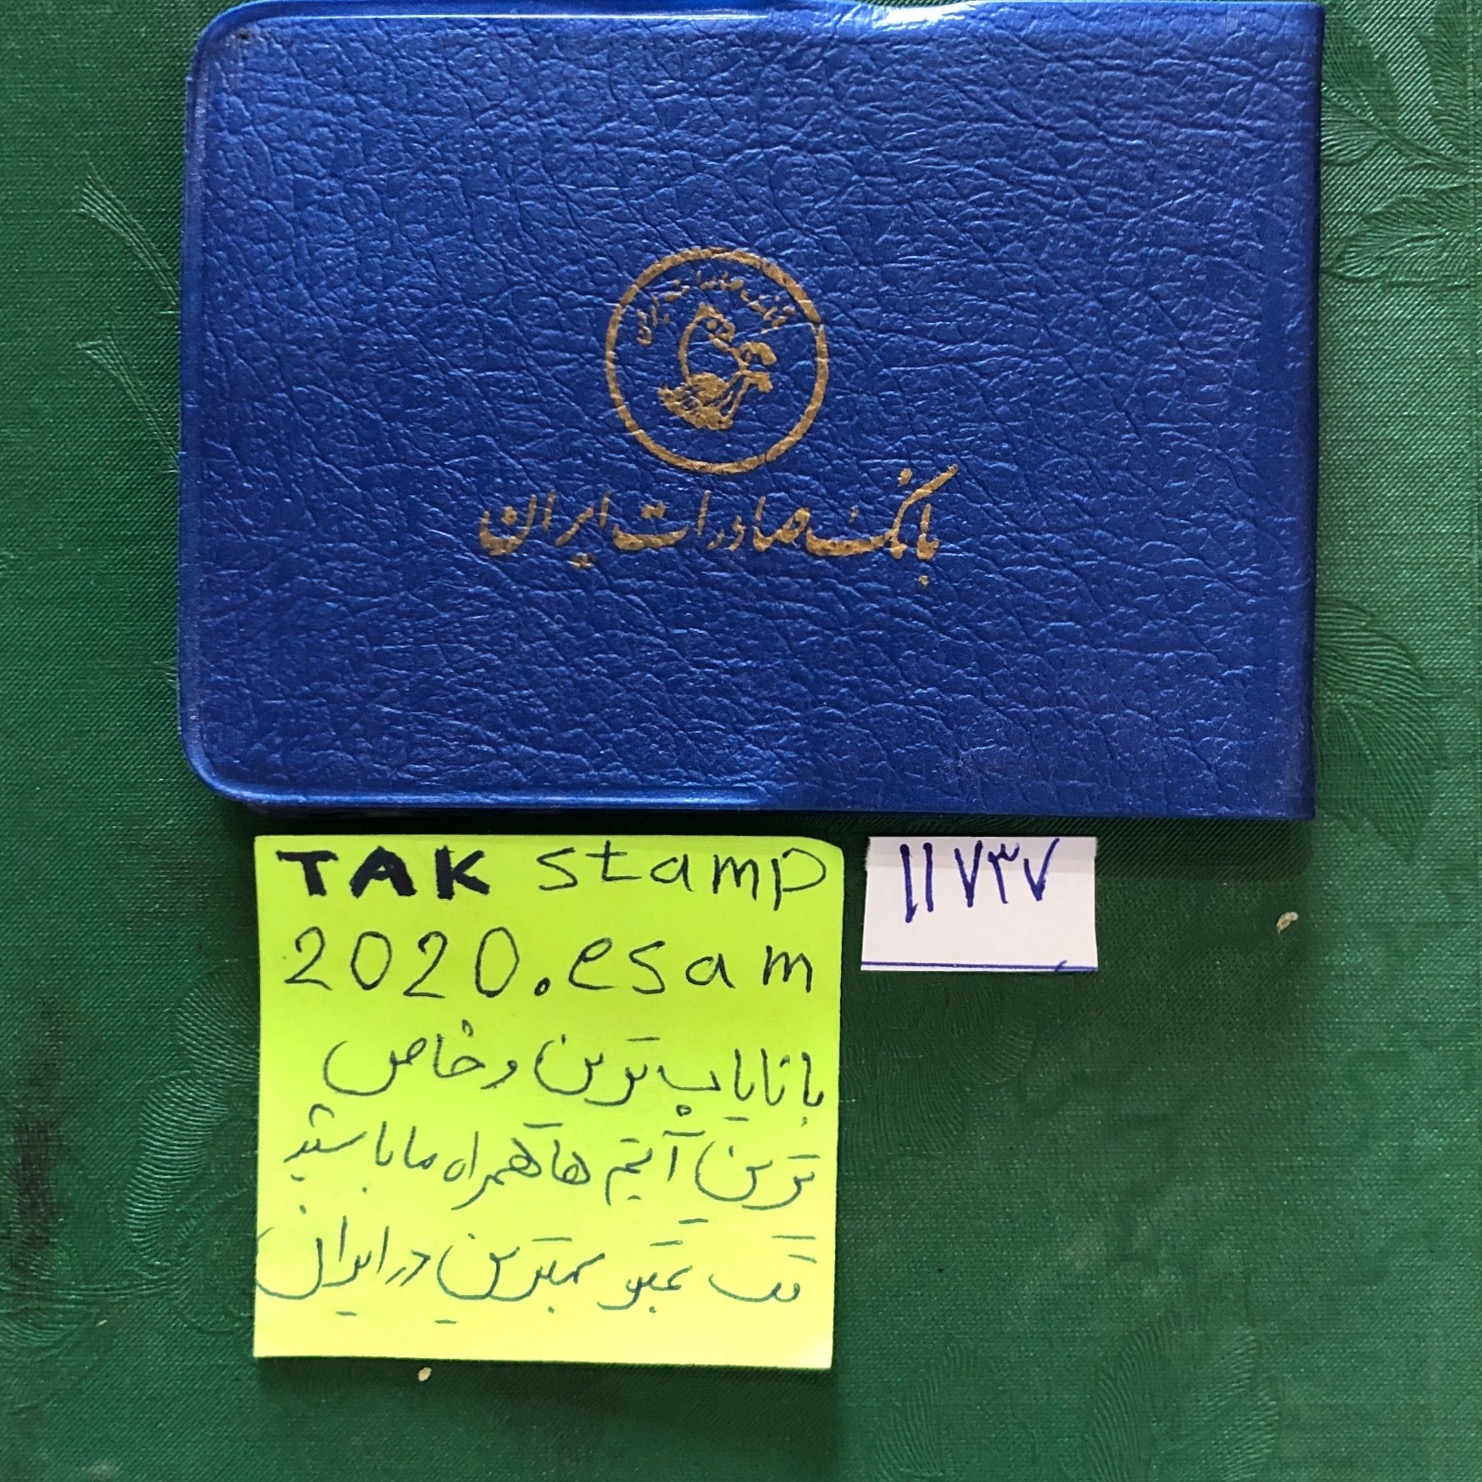 بانک صادرات ایران
بانک صادرات ایران
TAK stamp
2020.esam
با نایاب ترین و خاص
ترین آیتم ها همراه ما باشید
تک تمبر بهترین در ایران
۱۱۷۳۷